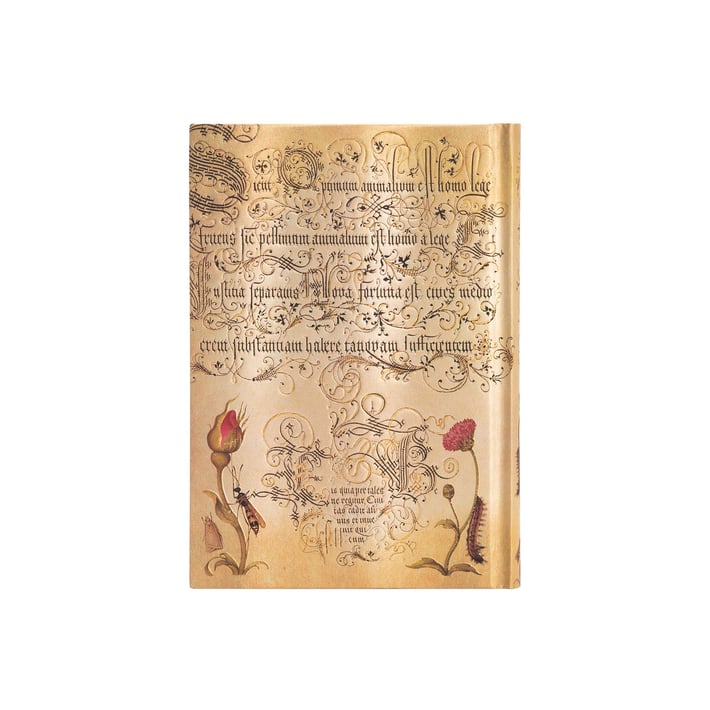 Sicut Optimum animalium est homo lege
fruens sic pessimum animalium est homo a lege Et
Iustitia separatus Nova fortuna est cives medio
crem substantiam habere tanquam sufficientem
is quia per tales
ne regitur Civi
tas cadit ali
uis et inve
nit qui
cum